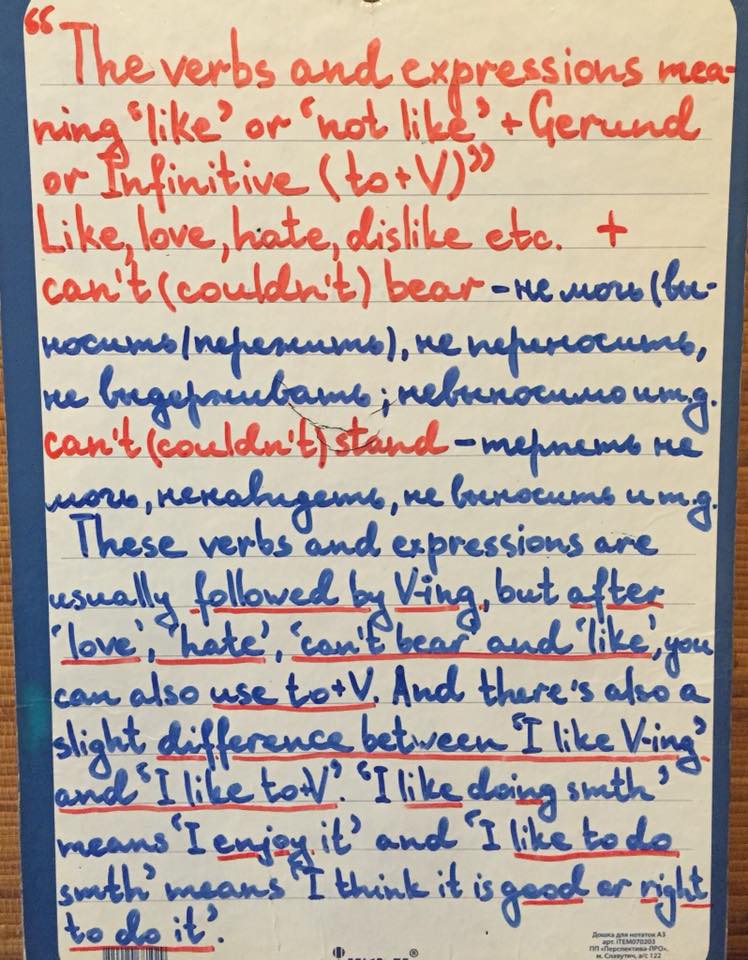 “The verbs and expressions mea-
ning ‘like’ or ‘not like’ + Gerund
or Infinitive (to+V)”
Like, love, hate, dislike etc. +
can't (couldn't) bear - не мочь (вы-
носить/пережить), не переносить,
не выдерживать; невыносимо и т.д.
can't (couldn't) stand - терпеть не
мочь, ненавидеть, не выносить и т.д.
These verbs and expressions are
usually followed by V-ing, but after
‘love’, ‘hate’, ‘can't bear’ and ‘like’, you
can also use to+V. And there's also a
slight difference between ‘I like V-ing’
and ‘I like to+V’. ‘I like doing smth’
means ‘I enjoy it’ and ‘I like to do
smth’ means ‘I think it is good or right
to do it’.
Дошка для нотаток А3
арт. ITEM070203
ПП «Перспектива-ПРО»,
м. Славутич, а/с 122